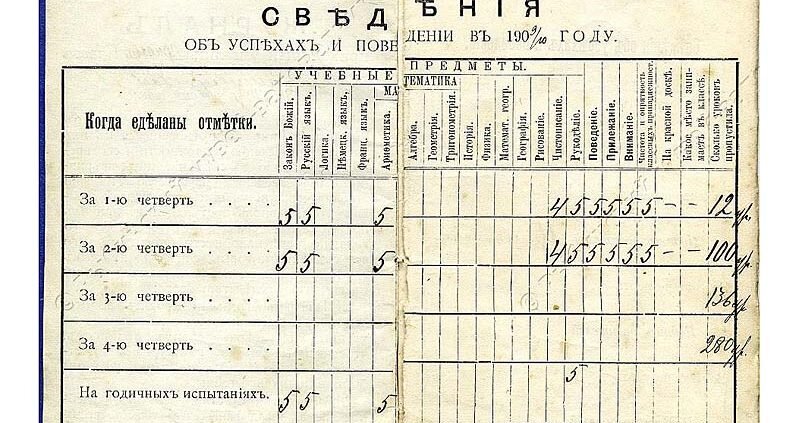 СВѢДѢНІЯ
ОБЪ УСПѢХАХЪ И ПОВЕДЕНІИ ВЪ 1909/10 ГОДУ.
УЧЕБНЫЕ ПРЕДМЕТЫ.
МАТЕМАТИКА
Когда сдѣланы отмѣтки.
Законъ Божій.
Русскій языкъ.
Логика.
Нѣмецк. языкъ.
Франц. языкъ.
Ариѳметика.
Алгебра.
Геометрія.
Тригонометрія.
Исторія.
Физика.
Математ. геогр.
Географія.
Рисованіе.
Чистописаніе.
Рукодѣліе.
Поведеніе.
Прилежаніе.
Вниманіе.
Чистота и опрятность классныхъ принадлежност.
На красной доскѣ.
Какое мѣсто занимаетъ въ классѣ.
Сколько уроковъ пропустила.
За 1-ю четверть . . . . 5 5 5 4 5 5 5 5 5 – – 12 ур.
За 2-ю четверть . . . . 5 5 5 4 5 5 5 5 5 – – 100 ур.
За 3-ю четверть . . . . 136 ур.
За 4-ю четверть . . . . 280 ур.
На годичныхъ испытаніяхъ. 5 5 5 5